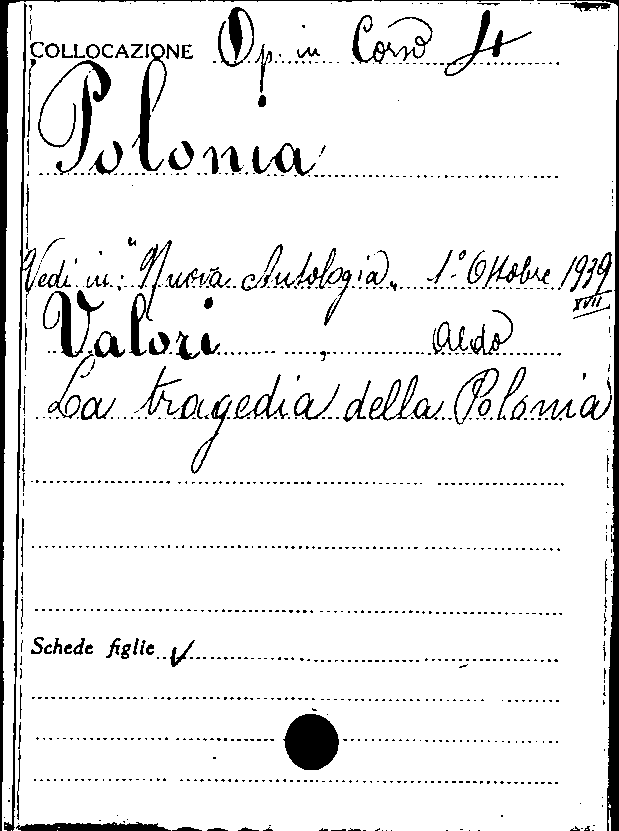 COLLOCAZIONE Op. in Corso 4
Polonia
Vedi in: "Nuova Antologia„ 1° Ottobre 1939
XVII
Valori, Aldo
La tragedia della Polonia
Schede figlie ✓